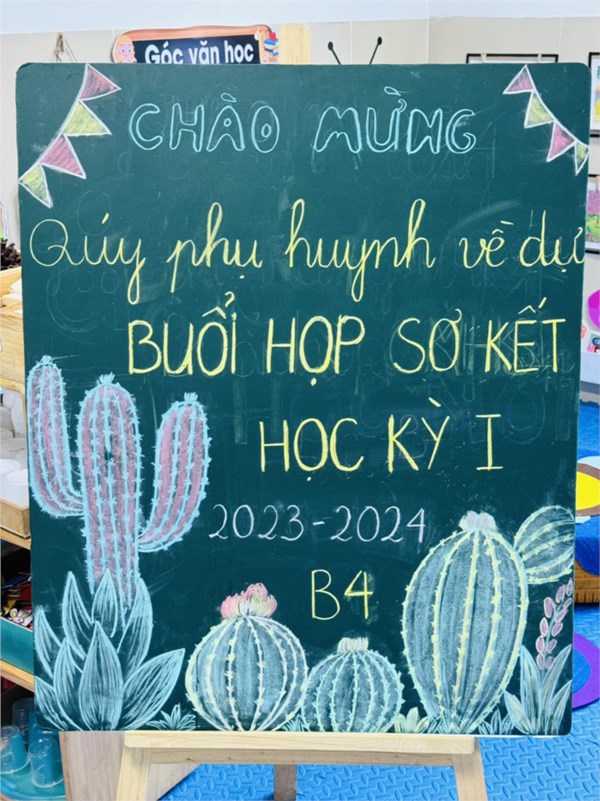 Góc văn học
CHÀO MỪNG
Qúy phụ huynh về dự
BUỔI HỌP SƠ KẾT
HỌC KỲ I
2023-2024
B4